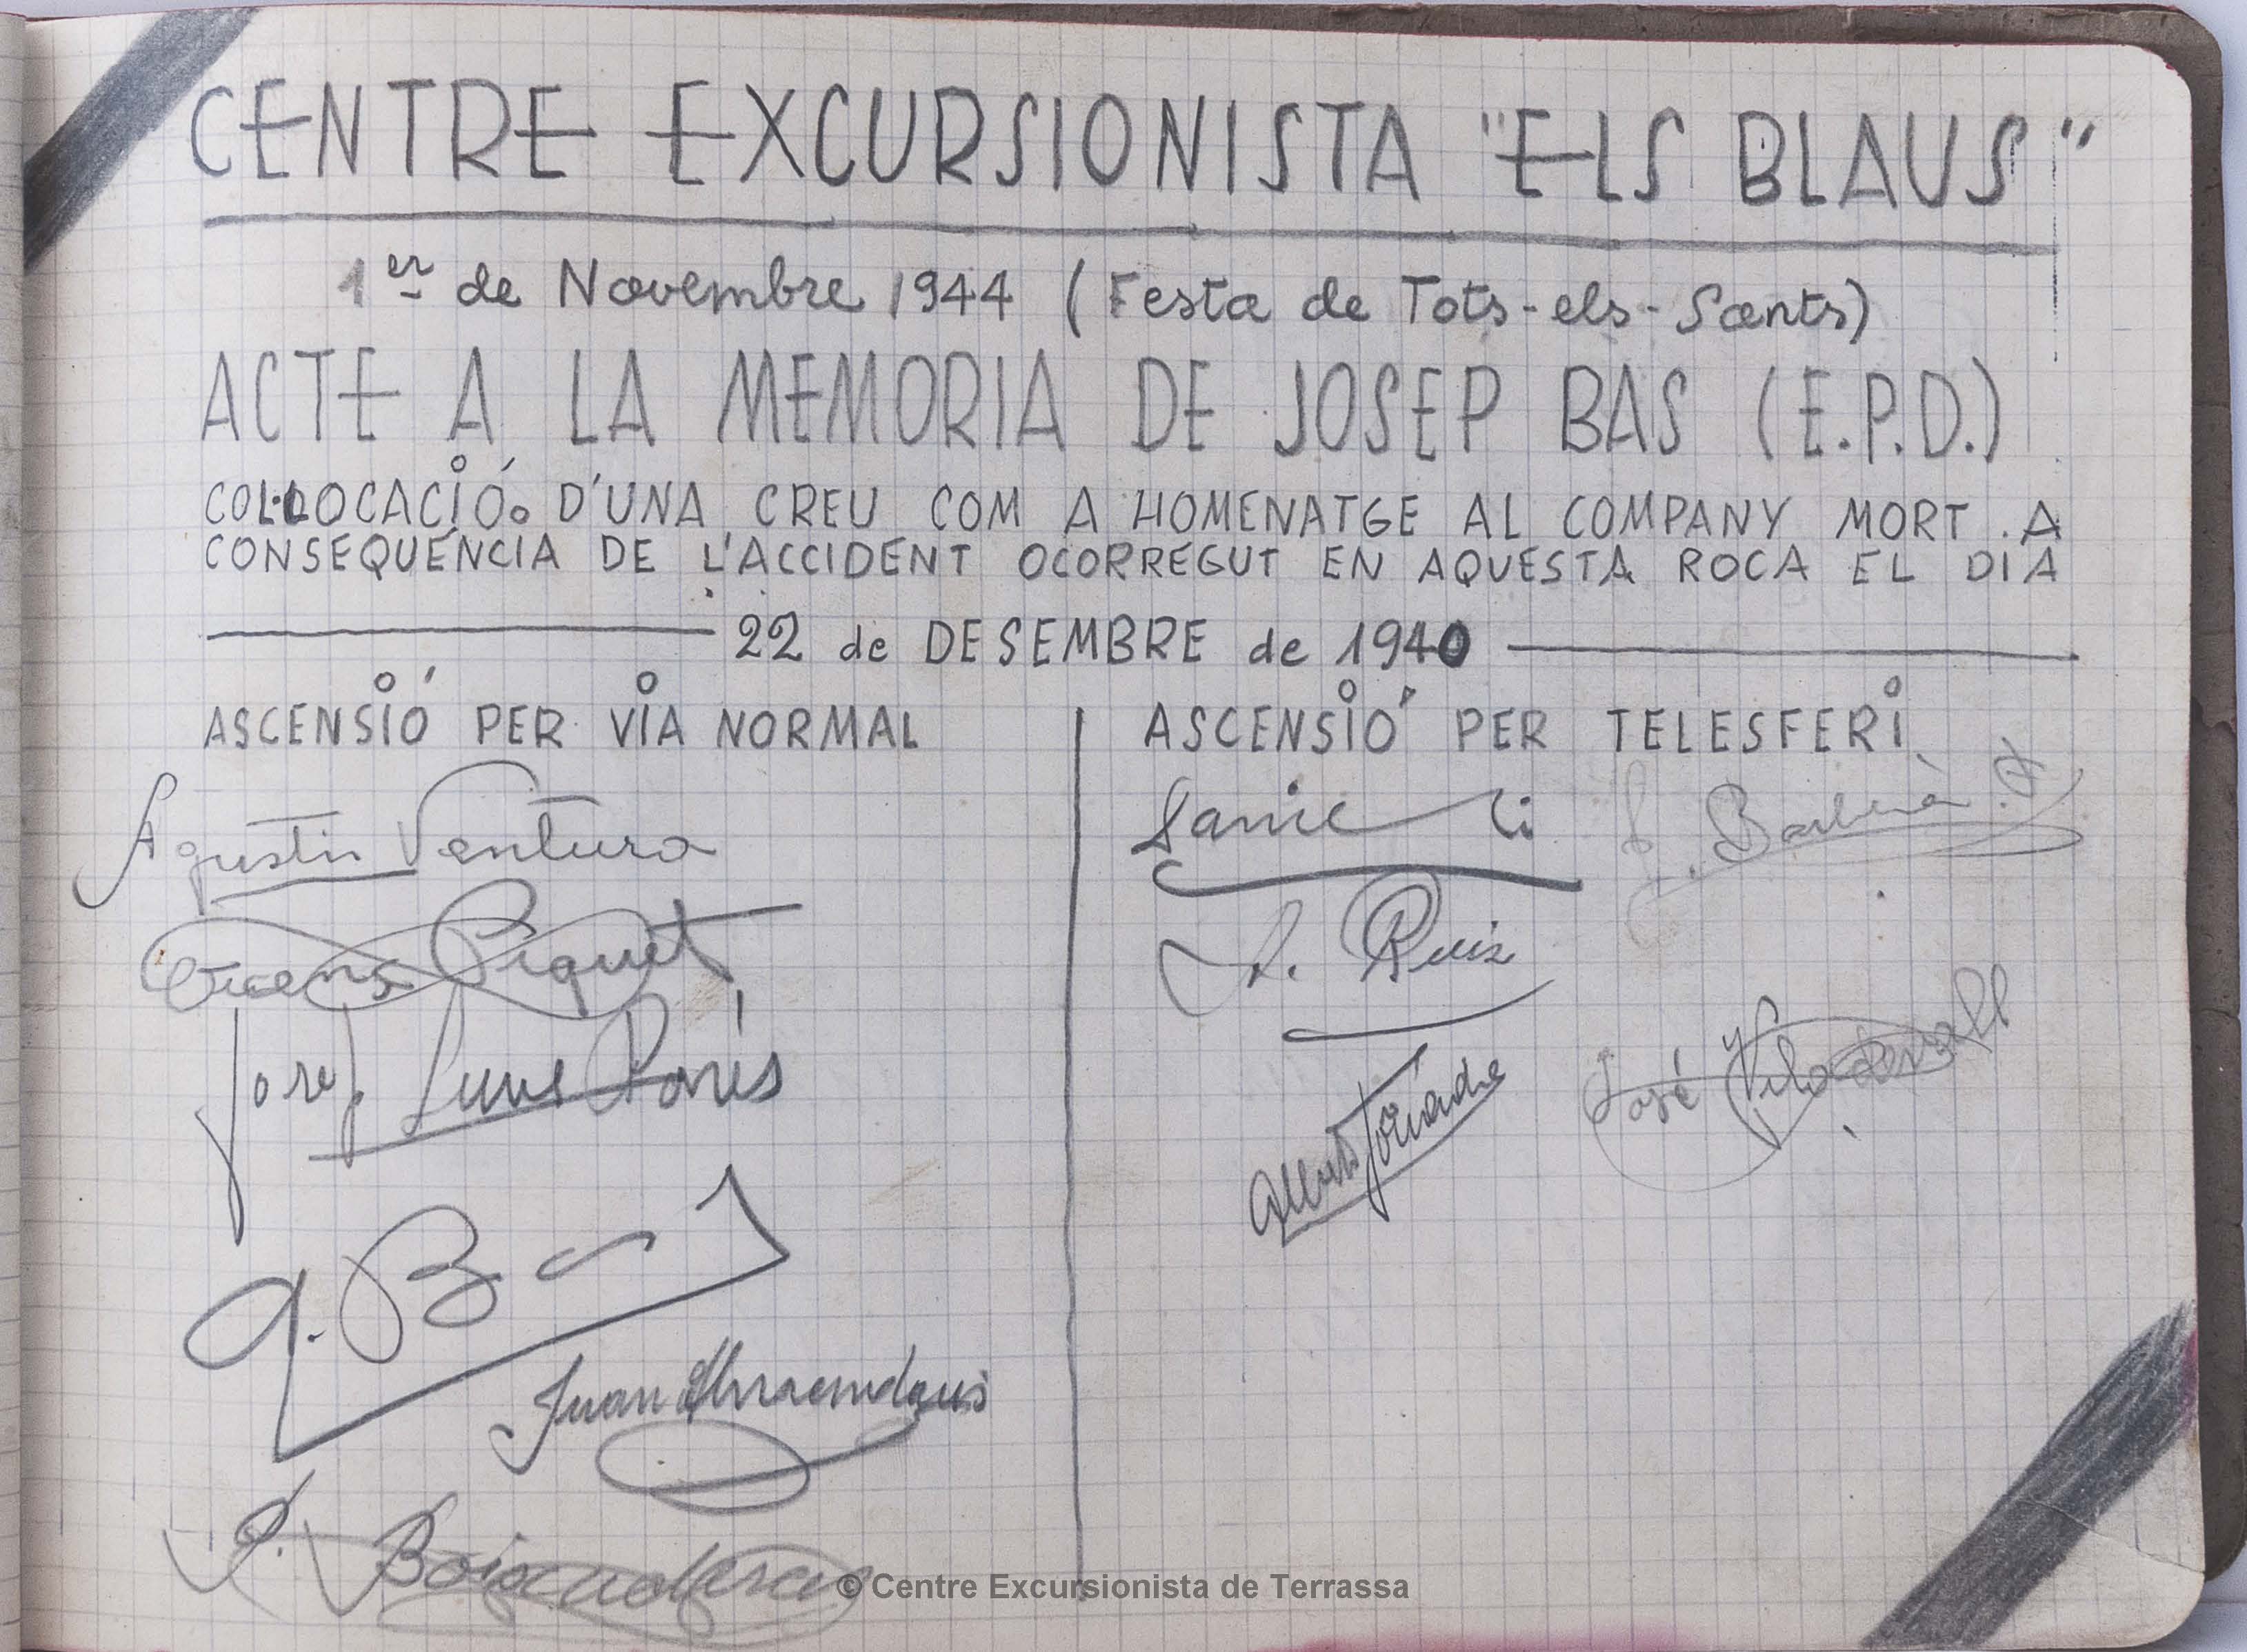 CENTRE EXCURSIONISTA "ELS BLAUS"
1er de Novembre 1944 (Festa de Tots-els-Sants)
ACTE A LA MEMORIA DE JOSEP BAS (E.P.D.)
COL·LOCACIÓ D'UNA CREU COM A HOMENATGE AL COMPANY MORT A
CONSEQUÉNCIA DE L'ACCIDENT OCORREGUT EN AQUESTA ROCA EL DIA
22 de DESEMBRE de 1940
ASCENSIÓ PER VIA NORMAL
Agustin Ventura
Vicens Piquet
Josep Lluis Parés
Juan
ASCENSIÓ PER TELESFERI
Barberà
Ruiz
José
© Centre Excursionista de Terrassa